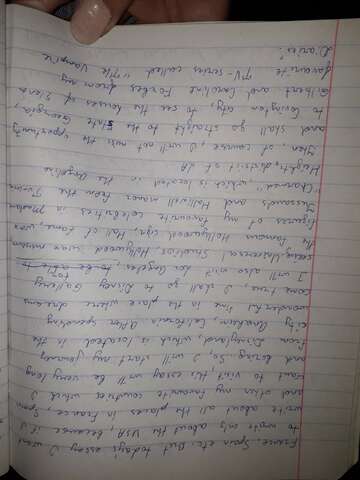 France, Spain etc. But today's essay I want
to wrote only about the USA, because if I
write about all the places in France, Spain,
and other my favourite countries which I
want to visit this essay will be very long
and boring. So, I will start my journey
from Disneyland, which is located in the
city Anaheim, California. After spending
wonderful time in the place where dreams
come true, I shall go to Disney Gallery.
I will also visit Los Angeles, for
seeing Universal Studios, Hollywood wax museum
Famous Hollywood sign, Hall of Fame, wax
figures of my favourite celebrities in Madam
Tussauds and Halliwell manor from the
"Charmed" which is located in the Angelino
Heights, district of LA.
Then, of course, I will not miss the opportunity
and shall go straight to the state Georgia,
to Covington city, to see the houses of Elena
Gilbert and Caroline Forbes from my
favourite TV-series called "The Vampire
Diaries".